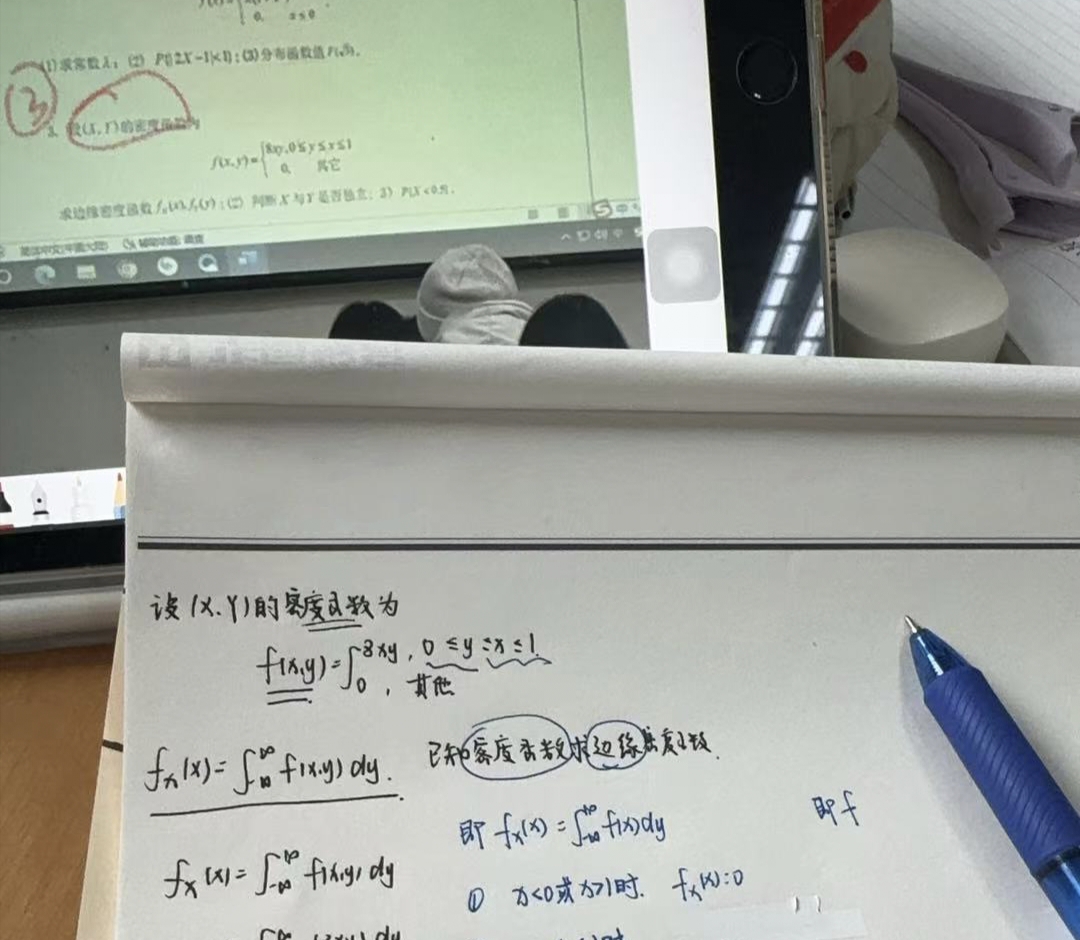 0, x≤0
(1)求常数A; (2) P(|2X-1|<1); (3)分布函数值F(√3).
③
3. 设(X,Y)的密度函数为
f(x,y)={8xy, 0≤y≤x≤1
0, 其它
求边缘密度函数 fₓ(x), fᵧ(y); (2) 判断 X 与 Y 是否独立; 3) P(X<0.5).
辅助功能: 调查
中
设(X.Y)的密度函数为
f(x,y)={8xy, 0≤y≤x≤1
0, 其他
fₓ(x)=∫_{-∞}^{∞} f(x,y) dy.
已知密度函数求边缘密度函数.
即 fₓ(x)=∫_{-∞}^{+∞} f(x)dy
即 f
fₓ(x)=∫_{-∞}^{+∞} f(x,y) dy
① x<0或x>1时. fₓ(x)=0